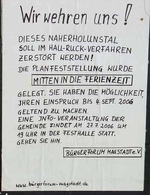 Wir wehren uns!
DIESES NAHERHOLUNSTAL
SOLL IM HAU-RUCK-VERFAHREN
ZERSTÖRT WERDEN!
DIE PLANFESTSTELLUNG WURDE
MITTEN IN DIE FERIENZEIT
GELEGT. SIE HABEN DIE MÖGLICHKEIT,
IHREN EINSPRUCH BIS 4. SEPT. 2006
EINE INFO-VERANSTALTUNG DER
GEMEINDE FINDET AM 27.7.2006 UM
19 UHR IN DER FESTHALLE STATT.
GEHEN SIE HIN.
BÜRGERFORUM MAGSTADT e.V.
www.bürgerforum-magstadt.de